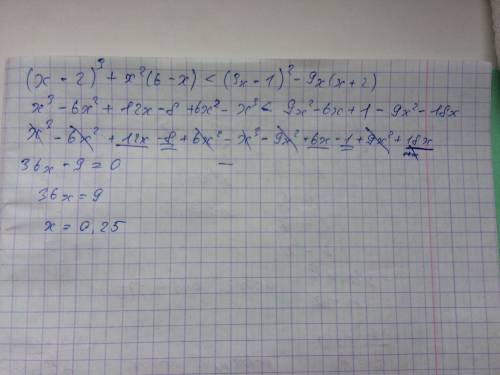 (x - 2)³ + x²(6 - x) < (3x - 1)² - 9x(x + 2)
x³ - 6x² + 12x - 8 + 6x² - x³ < 9x² - 6x + 1 - 9x² - 18x
x³ - 6x² + 12x - 8 + 6x² - x³ - 9x² + 6x - 1 + 9x² + 18x
36x - 9 = 0
36x = 9
x = 0,25